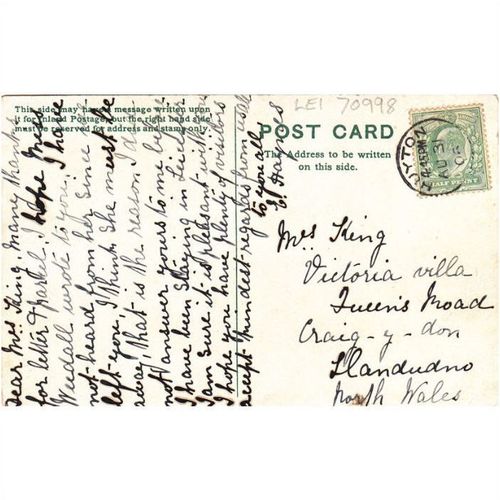 This side may have a message written upon
it for Inland Postage, but the right hand side
must be reserved for address and stamp only.
LEI 70998
POST CARD
The Address to be written
on this side.
HALF PENNY
4.45PM
AU 3
Mrs King
Victoria villa
Queen's Road
Craig-y-don
Llandudno
North Wales
Dear Mrs King, many thanks
for letter & Parcel, I hope Mrs
Wendall wrote to you, I have
not heard from her since she
left you, I think she must be
away, that is the reason I did
not answer yours to me before
I have been staying in
I am sure it is pleasant
I hope you have plenty of visitors
accept kindest regards from
to you all